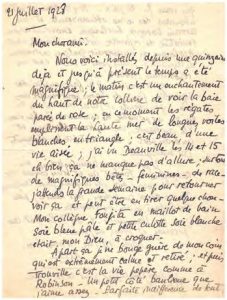 21 juillet 1928
Mon chéri.
Nous voici installés depuis une quinzaine
déjà et jusqu'à présent le temps a été
magnifique; le matin c'est un enchantement
du haut de notre colline de voir la baie
parée de rose; en ce moment les régates
emplissent la haute mer de longues voiles
blanches en triangle, c'est beau d'une
vie aisée; j'ai vu Trouville les 14 et 15
eh bien ça ne manque pas d'allure; surtout
de magnifiques bêtes féminines de race
j'attends la grande semaine pour retourner
voir ça et peut être en tirer quelque chose
Mon collègue Foujita en maillot de bain
soie bleu pâle et petite culotte soie blanche
était, mon Dieu, à croquer.
A part ça je ne bouge guère de mon coin
qui est extrêmement calme et retiré; et puis
Trouville c'est la vie popère comme à
Robinson. Un petit côté banlieue que
j'aime assez. Parfaite ignorance de tout